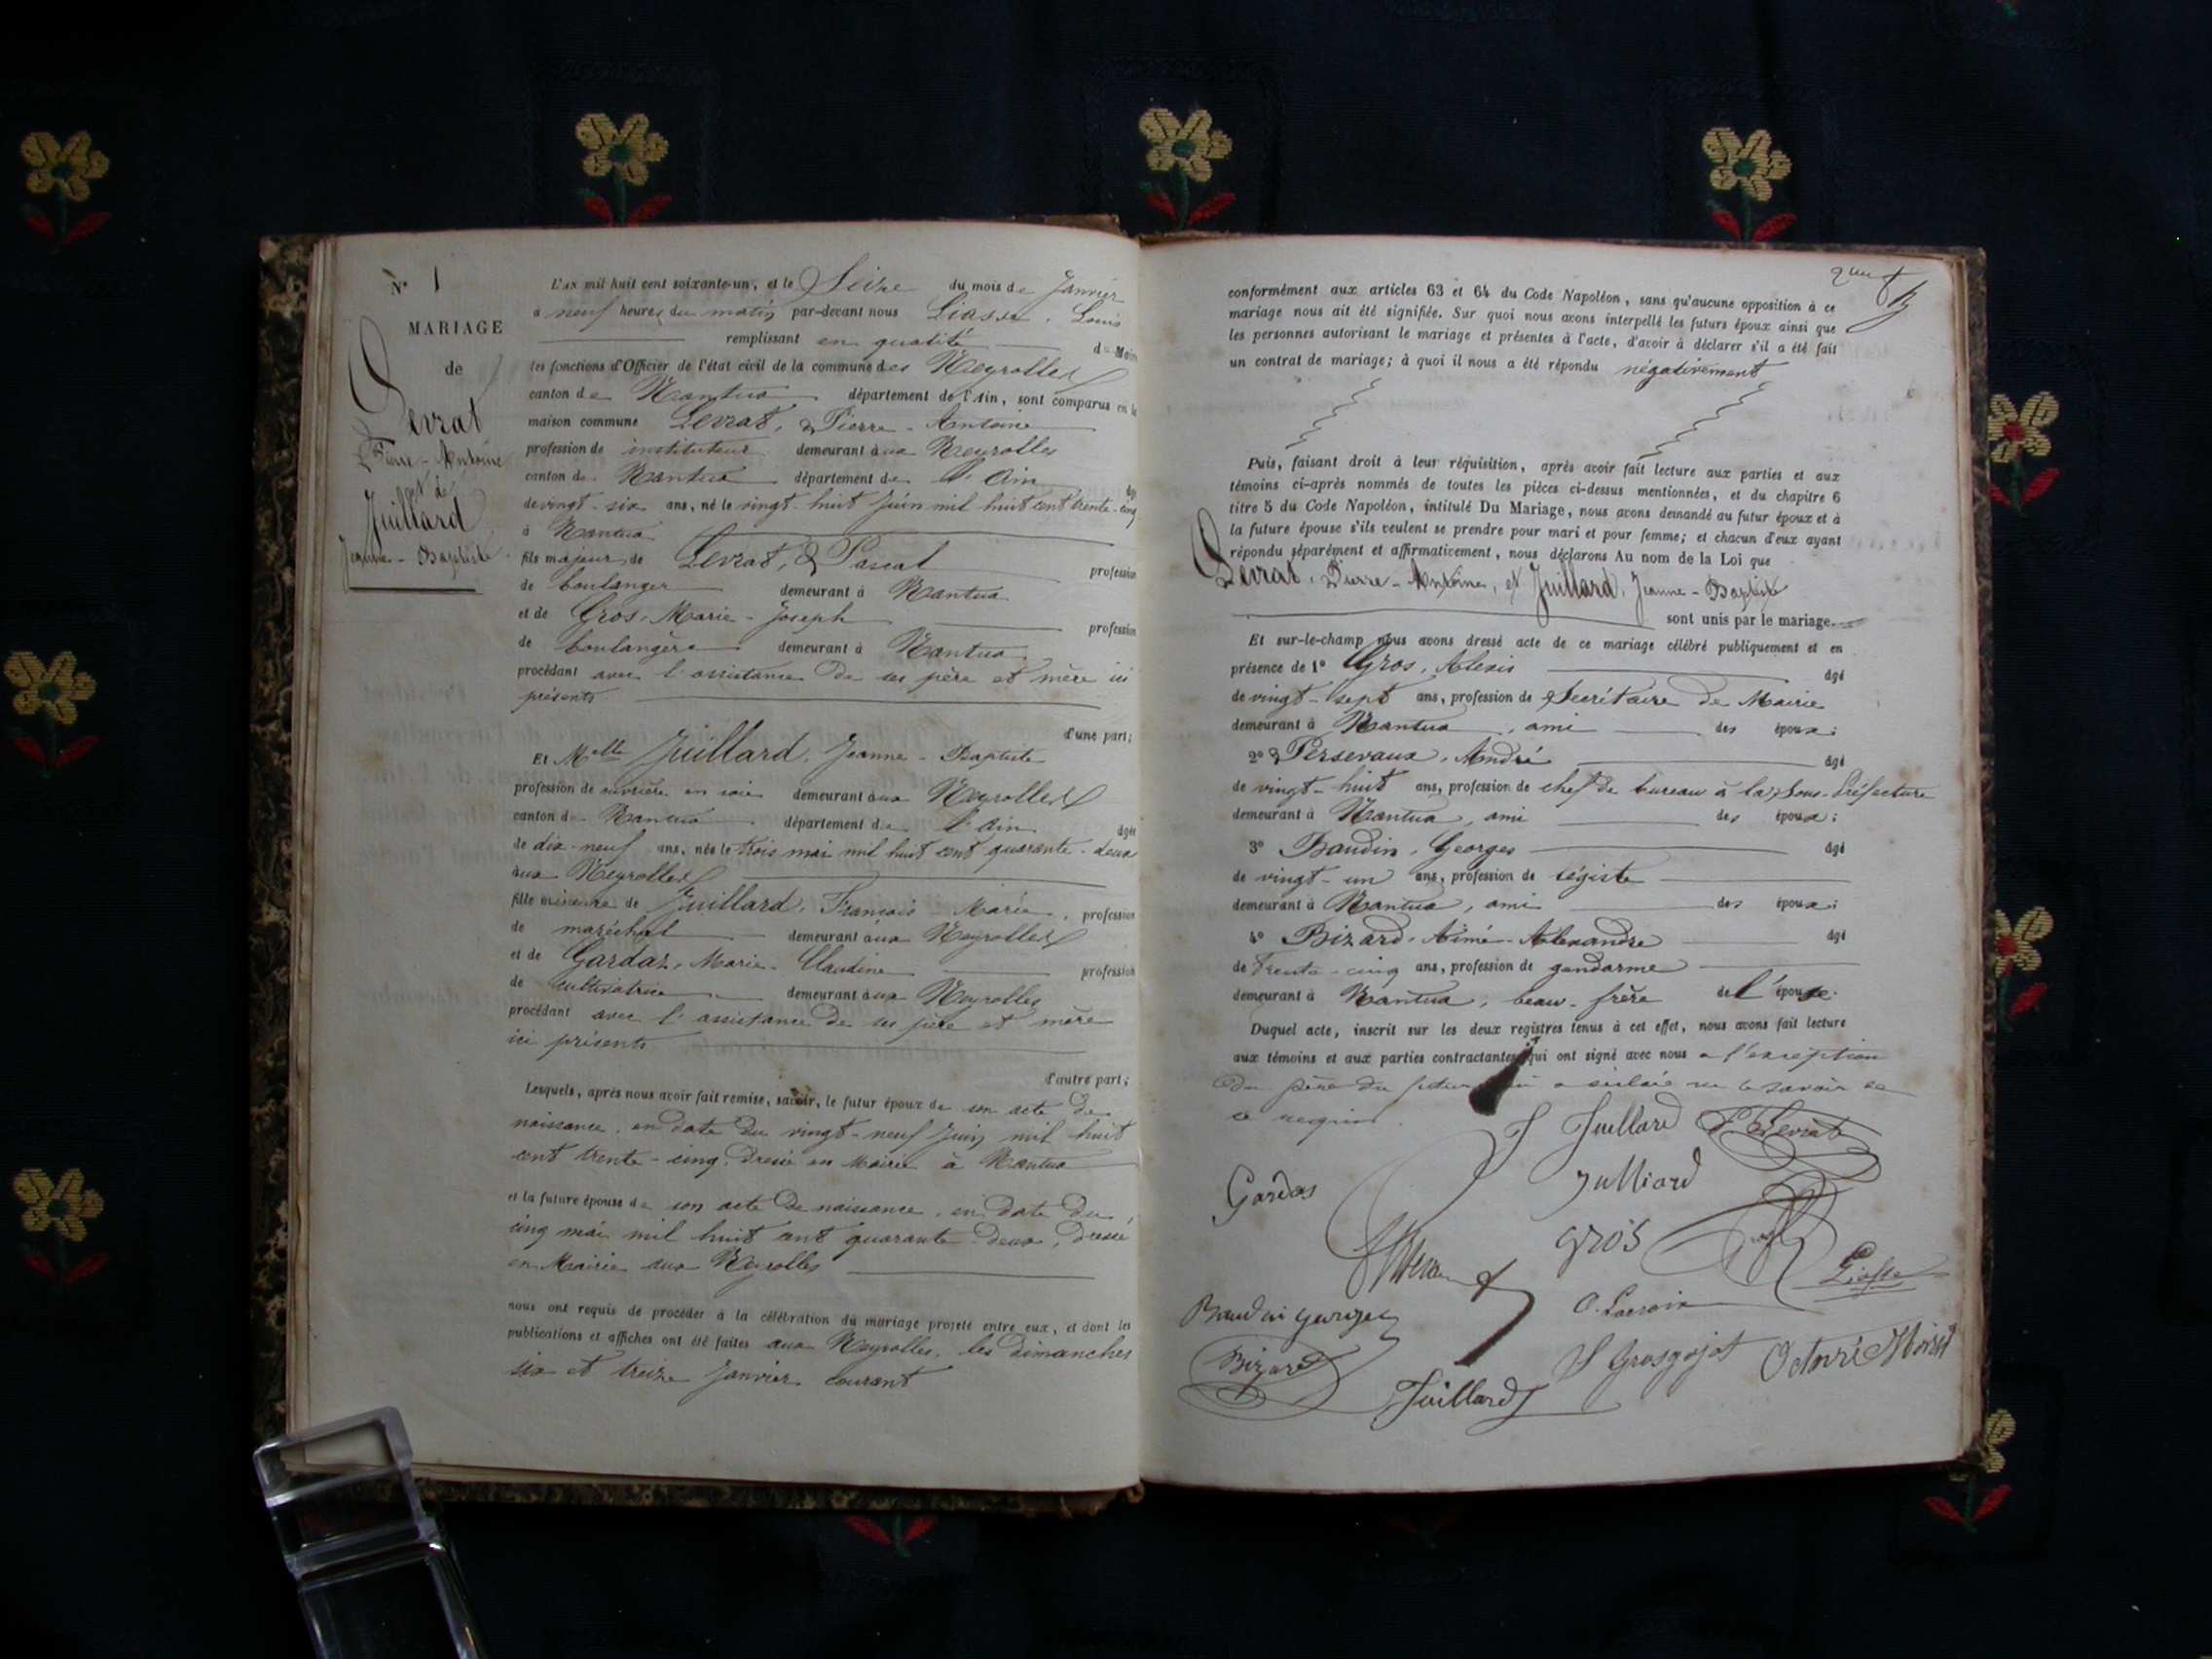 N° 1
MARIAGE
de
Levrat
Pierre-Antoine
et de
Juillard
Jeanne-Baptiste
L'AN mil huit cent soixante-un, et le Seize du mois de Janvier
à neuf heures du matin par-devant nous Liasse, Louis
remplissant en qualité de Maire
les fonctions d'Officier de l'état civil de la commune des Neyrolles
canton de Nantua département de l'Ain, sont comparus en la
maison commune Levrat, Pierre-Antoine
profession de instituteur demeurant aux Neyrolles
canton de Nantua département de l'Ain âgé
de vingt-six ans, né le vingt-huit Juin mil huit cent trente-cinq
à Nantua
fils majeur de Levrat, Pascal profession
de boulanger demeurant à Nantua
et de Gros, Marie-Joseph profession
de boulangère demeurant à Nantua
procédant avec l'assistance de ses père et mère ici
présents
d'une part;
Et Melle Juillard, Jeanne-Baptiste
profession de ouvrière en soie demeurant aux Neyrolles
canton de Nantua département de l'Ain âgée
de dix-neuf ans, née le trois mai mil huit cent quarante-deux
aux Neyrolles
fille mineure de Juillard, François-Marie, profession
de maréchal demeurant aux Neyrolles
et de Gardaz, Marie-Claudine profession
de cultivatrice demeurant aux Neyrolles
procédant avec l'assistance de ses père et mère
ici présents
d'autre part;
Lesquels, après nous avoir fait remise, savoir, le futur époux de son acte de
naissance, en date du vingt-neuf Juin mil huit
cent trente-cinq, dressé en Mairie à Nantua
et la future épouse de son acte de naissance, en date du
cinq mai mil huit cent quarante-deux, dressé
en Mairie aux Neyrolles
nous ont requis de procéder à la célébration du mariage projeté entre eux, et dont les
publications et affiches ont été faites aux Neyrolles, les dimanches
six et treize Janvier courant
conformément aux articles 63 et 64 du Code Napoléon, sans qu'aucune opposition à ce
mariage nous ait été signifiée. Sur quoi nous avons interpellé les futurs époux ainsi que
les personnes autorisant le mariage et présentes à l'acte, d'avoir à déclarer s'il a été fait
un contrat de mariage; à quoi il nous a été répondu négativement
Puis, faisant droit à leur réquisition, après avoir fait lecture aux parties et aux
témoins ci-après nommés de toutes les pièces ci-dessus mentionnées, et du chapitre 6
titre 5 du Code Napoléon, intitulé Du Mariage, nous avons demandé au futur époux et à
la future épouse s'ils veulent se prendre pour mari et pour femme; et chacun d'eux ayant
répondu séparément et affirmativement, nous déclarons Au nom de la Loi que
Levrat, Pierre-Antoine, et Juillard, Jeanne-Baptiste
sont unis par le mariage.
Et sur-le-champ nous avons dressé acte de ce mariage célébré publiquement et en
présence de 1° Gros, Alexis âgé
de vingt-sept ans, profession de Secrétaire de Mairie
demeurant à Nantua, ami des époux;
2° Persevaux, André âgé
de vingt-huit ans, profession de chef de bureau à la Sous-Préfecture
demeurant à Nantua, ami des époux;
3° Baudin, Georges âgé
de vingt-un ans, profession de légiste
demeurant à Nantua, ami des époux;
4° Bizard, Aimé-Alexandre âgé
de trente-cinq ans, profession de gendarme
demeurant à Nantua, beau-frère de l'épouse.
Duquel acte, inscrit sur les deux registres tenus à cet effet, nous avons fait lecture
aux témoins et aux parties contractantes qui ont signé avec nous à l'exception
du père du futur qui a déclaré ne le savoir de
ce requis.
J Juillard P Levrat
Gardas Julliard
Gros
Liasse
Baudin Georges O. Lacroix
Bizard J Grosgojat Octavie Moiret
Juillard